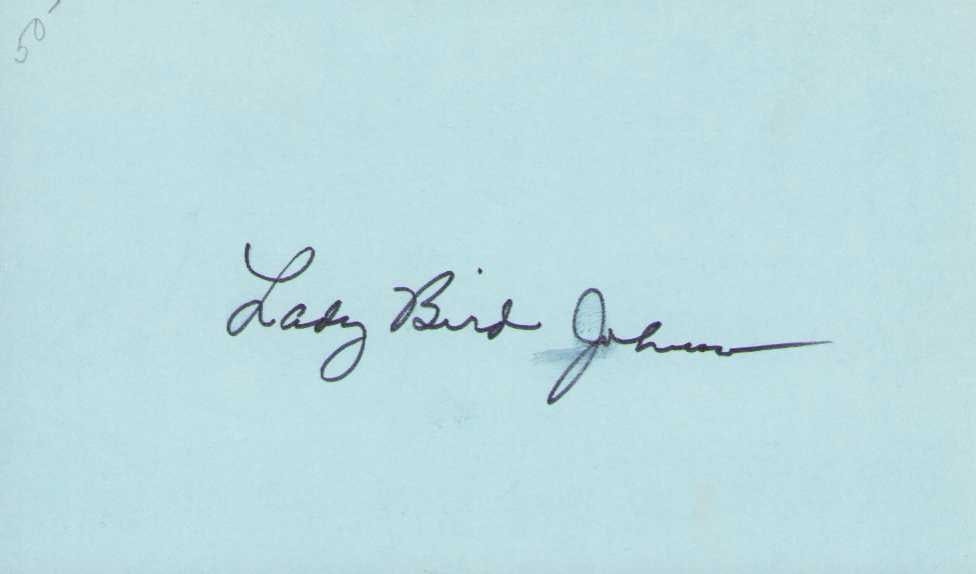 50-
Lady Bird Johnson